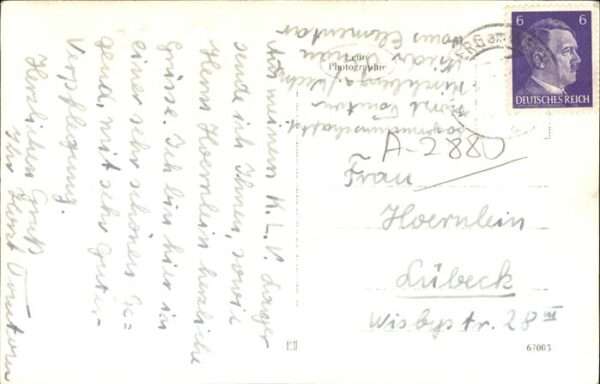 Aus meinem K.L.V. Lager
sende ich Ihnen, sowie
Herrn Hoernlein herzliche
Grüsse. Ich bin hier in
einer sehr schönen Ge=
gend, mit sehr guter
Verpflegung.
Herzlichen Gruß
Ihr Horst
Echte
Photographie
6 6
DEUTSCHES REICH
A-2880
Frau
Hoernlein
Lübeck
Wisbystr. 28 III
67003